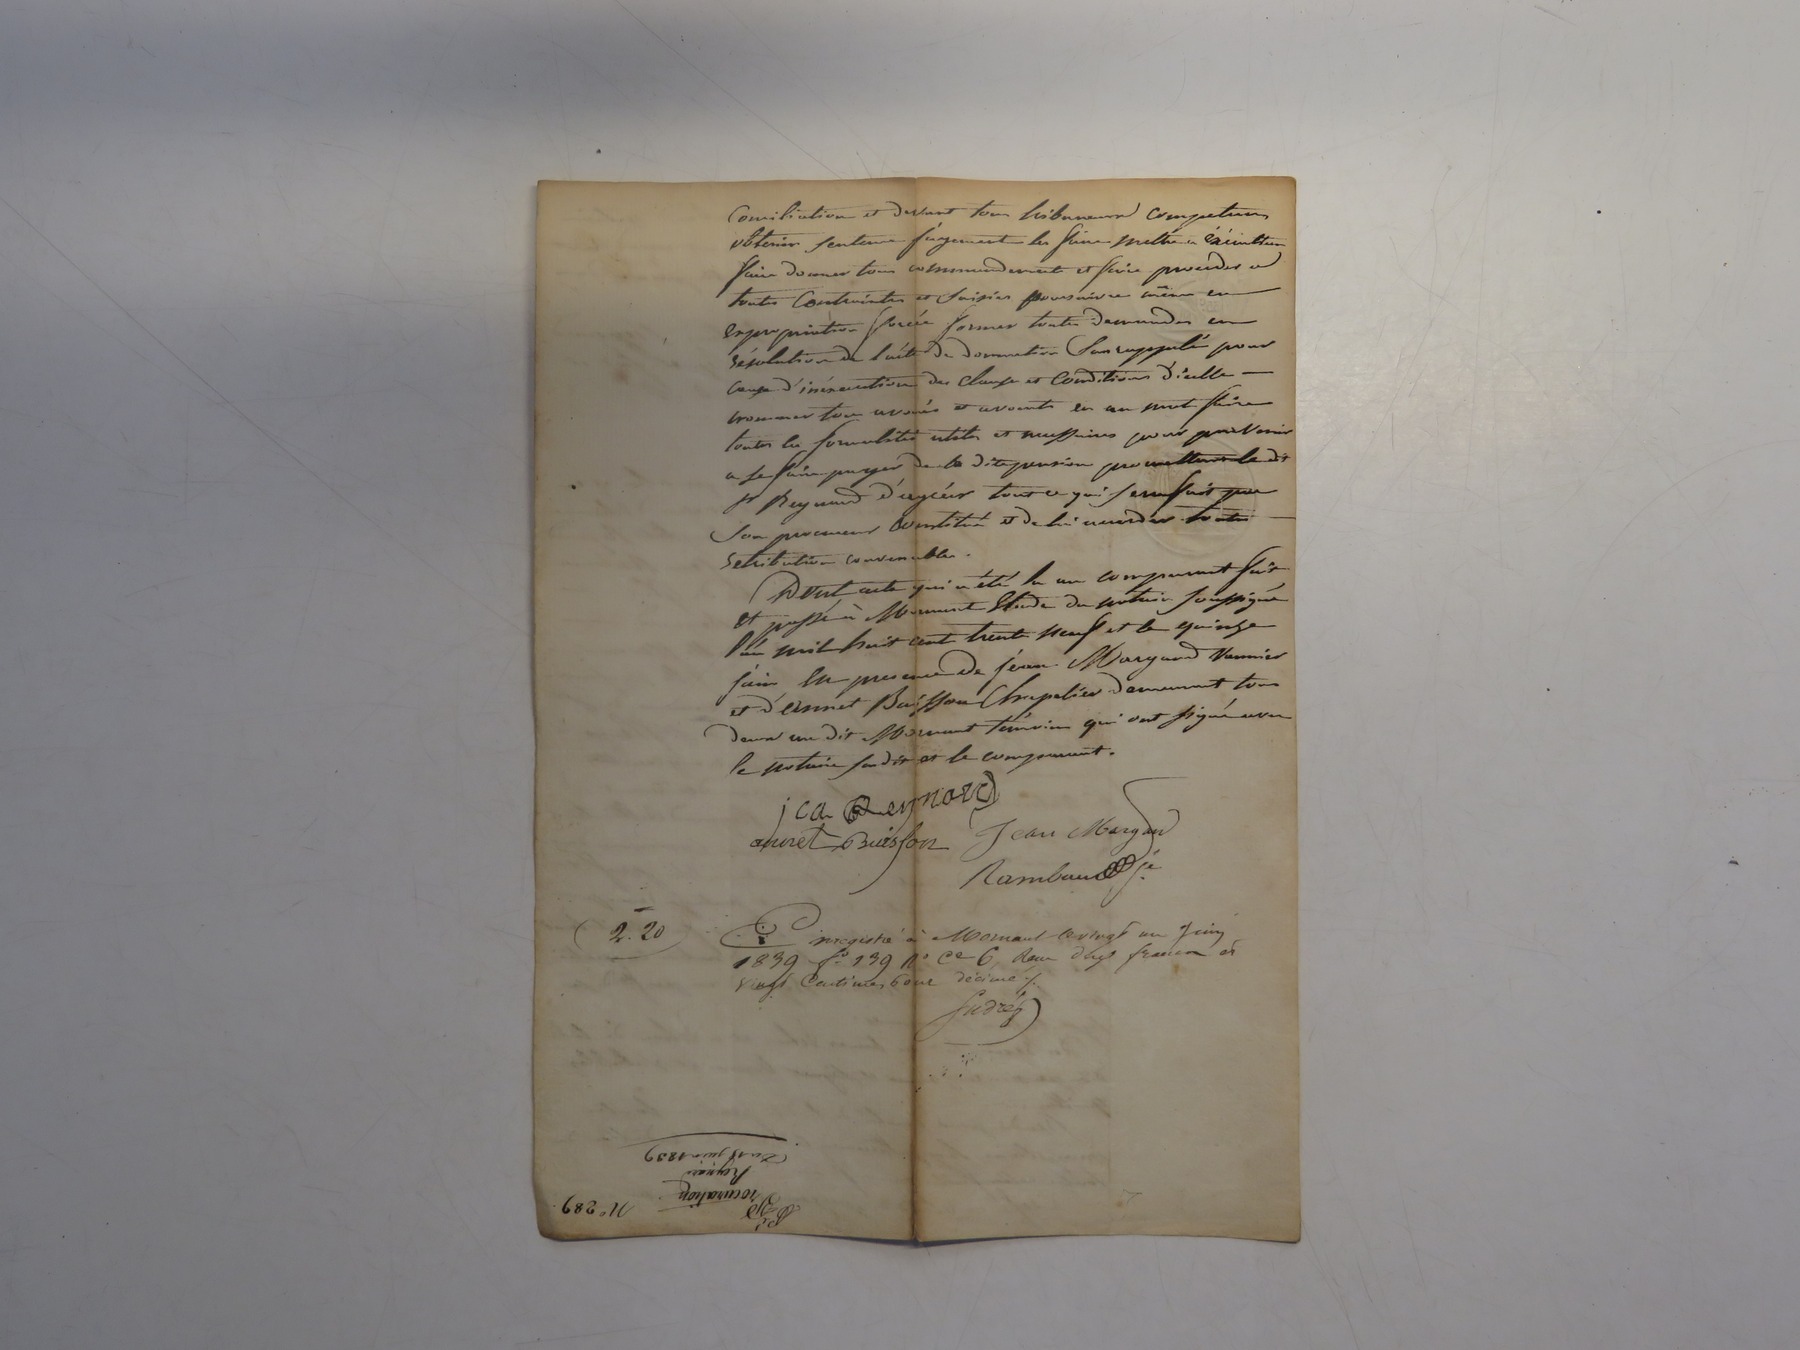 Conciliation et devant tous tribunaux competens
obtenir sentence jugement les faire mettre a execution
faire donner tous commandements et faire proceder a
toutes Contraintes et saisies poursuivre même en
expropriation forcée former toutes demandes en
résolution de l'acte de donnation sus rappelé pour
cause d'inéxecution des clause et Conditions d'icelle —
nommer tous avoués et avocats en un mot faire
toutes les formalités utiles et necessaires pour parvenir
a se faire payer de la dite pension promettant le dit
Sr Reynard d'agréer tout ce qui sera fait par
son procureur Constitué et de lui accorder toute —
retribution convenable.
Dont acte qui a été lu au comparant fait
et passé à Mornant Etude du notaire soussigné
l'an mil huit cent trente neuf et le quinze
juin En presence de jean Margand Vannier
et d'Annet Buisson Chapelier demeurant tous
deux au dit Mornant témoins qui ont signé avec
le notaire susdit et le comparant.
jea Reynard
annet Buisson Jean Margand
Rambaud
2. 20 Enregistré à Mornant le vingt un Juin
1839 fo 139 Ro Ce 6 Reçu deux francs et
vingt Centimes pour décime.
Du 15 juin 1839
Reynard
Procuration
No 289.